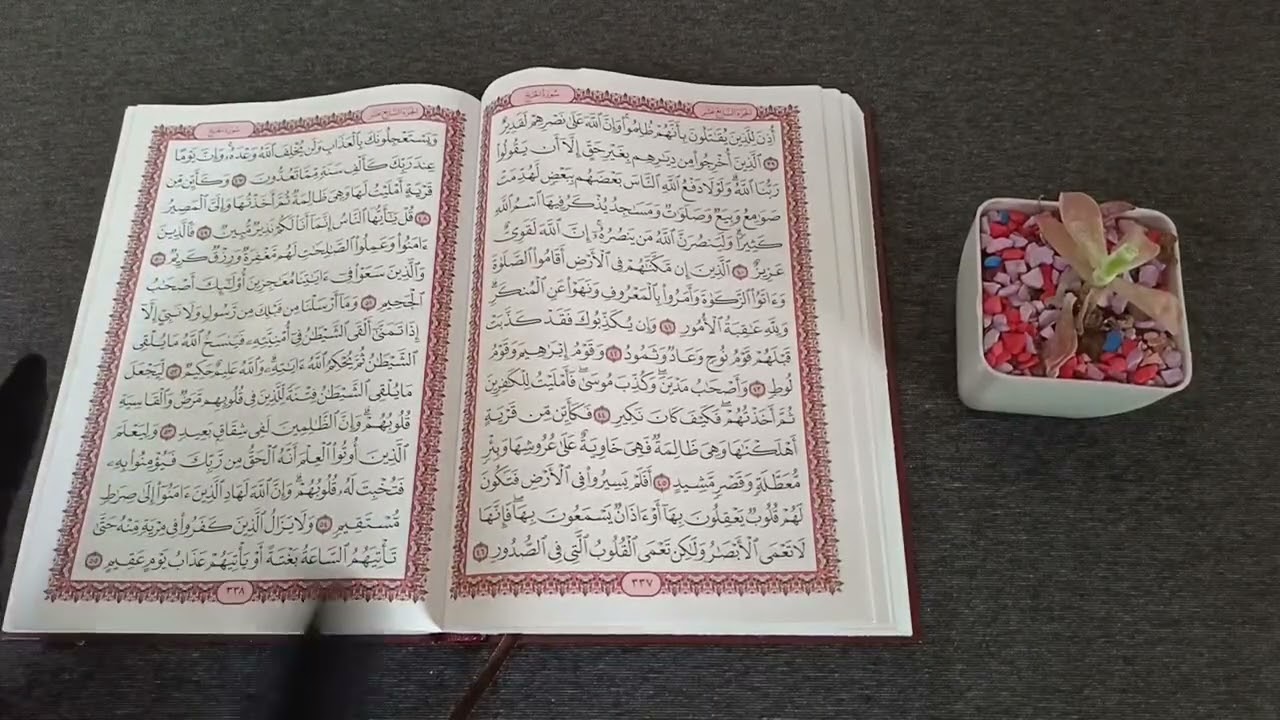 الجزء السابع عشر
سورة الحج
أُذِنَ لِلَّذِينَ يُقَٰتَلُونَ بِأَنَّهُمْ ظُلِمُوا۟ وَإِنَّ ٱللَّهَ عَلَىٰ نَصْرِهِمْ لَقَدِيرٌ
٣٩ ٱلَّذِينَ أُخْرِجُوا۟ مِن دِيَٰرِهِم بِغَيْرِ حَقٍّ إِلَّآ أَن يَقُولُوا۟
رَبُّنَا ٱللَّهُ وَلَوْلَا دَفْعُ ٱللَّهِ ٱلنَّاسَ بَعْضَهُم بِبَعْضٍ لَّهُدِّمَتْ
صَوَٰمِعُ وَبِيَعٌ وَصَلَوَٰتٌ وَمَسَٰجِدُ يُذْكَرُ فِيهَا ٱسْمُ ٱللَّهِ
كَثِيرًا وَلَيَنصُرَنَّ ٱللَّهُ مَن يَنصُرُهُۥٓ إِنَّ ٱللَّهَ لَقَوِىٌّ
عَزِيزٌ ٤٠ ٱلَّذِينَ إِن مَّكَّنَّٰهُمْ فِى ٱلْأَرْضِ أَقَامُوا۟ ٱلصَّلَوٰةَ
وَءَاتَوُا۟ ٱلزَّكَوٰةَ وَأَمَرُوا۟ بِٱلْمَعْرُوفِ وَنَهَوْا۟ عَنِ ٱلْمُنكَرِ
وَلِلَّهِ عَٰقِبَةُ ٱلْأُمُورِ ٤١ وَإِن يُكَذِّبُوكَ فَقَدْ كَذَّبَتْ
قَبْلَهُمْ قَوْمُ نُوحٍ وَعَادٌ وَثَمُودُ ٤٢ وَقَوْمُ إِبْرَٰهِيمَ وَقَوْمُ
لُوطٍ ٤٣ وَأَصْحَٰبُ مَدْيَنَ وَكُذِّبَ مُوسَىٰ فَأَمْلَيْتُ لِلْكَٰفِرِينَ
ثُمَّ أَخَذْتُهُمْ فَكَيْفَ كَانَ نَكِيرِ ٤٤ فَكَأَيِّن مِّن قَرْيَةٍ
أَهْلَكْنَٰهَا وَهِىَ ظَالِمَةٌ فَهِىَ خَاوِيَةٌ عَلَىٰ عُرُوشِهَا وَبِئْرٍ
مُّعَطَّلَةٍ وَقَصْرٍ مَّشِيدٍ ٤٥ أَفَلَمْ يَسِيرُوا۟ فِى ٱلْأَرْضِ فَتَكُونَ
لَهُمْ قُلُوبٌ يَعْقِلُونَ بِهَآ أَوْ ءَاذَانٌ يَسْمَعُونَ بِهَا فَإِنَّهَا
لَا تَعْمَى ٱلْأَبْصَٰرُ وَلَٰكِن تَعْمَى ٱلْقُلُوبُ ٱلَّتِى فِى ٱلصُّدُورِ ٤٦
٣٣٧
الجزء السابع عشر
سورة الحج
وَيَسْتَعْجِلُونَكَ بِٱلْعَذَابِ وَلَن يُخْلِفَ ٱللَّهُ وَعْدَهُۥ وَإِنَّ يَوْمًا
عِندَ رَبِّكَ كَأَلْفِ سَنَةٍ مِّمَّا تَعُدُّونَ ٤٧ وَكَأَيِّن مِّن
قَرْيَةٍ أَمْلَيْتُ لَهَا وَهِىَ ظَالِمَةٌ ثُمَّ أَخَذْتُهَا وَإِلَىَّ ٱلْمَصِيرُ
٤٨ قُلْ يَٰٓأَيُّهَا ٱلنَّاسُ إِنَّمَآ أَنَا۠ لَكُمْ نَذِيرٌ مُّبِينٌ ٤٩ فَٱلَّذِينَ
ءَامَنُوا۟ وَعَمِلُوا۟ ٱلصَّٰلِحَٰتِ لَهُم مَّغْفِرَةٌ وَرِزْقٌ كَرِيمٌ ٥٠
وَٱلَّذِينَ سَعَوْا۟ فِىٓ ءَايَٰتِنَا مُعَٰجِزِينَ أُو۟لَٰٓئِكَ أَصْحَٰبُ
ٱلْجَحِيمِ ٥١ وَمَآ أَرْسَلْنَا مِن قَبْلِكَ مِن رَّسُولٍ وَلَا نَبِىٍّ إِلَّآ
إِذَا تَمَنَّىٰٓ أَلْقَى ٱلشَّيْطَٰنُ فِىٓ أُمْنِيَّتِهِۦ فَيَنسَخُ ٱللَّهُ مَا يُلْقِى
ٱلشَّيْطَٰنُ ثُمَّ يُحْكِمُ ٱللَّهُ ءَايَٰتِهِۦ وَٱللَّهُ عَلِيمٌ حَكِيمٌ ٥٢ لِّيَجْعَلَ
مَا يُلْقِى ٱلشَّيْطَٰنُ فِتْنَةً لِّلَّذِينَ فِى قُلُوبِهِم مَّرَضٌ وَٱلْقَاسِيَةِ
قُلُوبُهُمْ وَإِنَّ ٱلظَّٰلِمِينَ لَفِى شِقَاقٍۭ بَعِيدٍ ٥٣ وَلِيَعْلَمَ
ٱلَّذِينَ أُوتُوا۟ ٱلْعِلْمَ أَنَّهُ ٱلْحَقُّ مِن رَّبِّكَ فَيُؤْمِنُوا۟ بِهِۦ
فَتُخْبِتَ لَهُۥ قُلُوبُهُمْ وَإِنَّ ٱللَّهَ لَهَادِ ٱلَّذِينَ ءَامَنُوٓا۟ إِلَىٰ صِرَٰطٍ
مُّسْتَقِيمٍ ٥٤ وَلَا يَزَالُ ٱلَّذِينَ كَفَرُوا۟ فِى مِرْيَةٍ مِّنْهُ حَتَّىٰ
تَأْتِيَهُمُ ٱلسَّاعَةُ بَغْتَةً أَوْ يَأْتِيَهُمْ عَذَابُ يَوْمٍ عَقِيمٍ ٥٥
٣٣٨